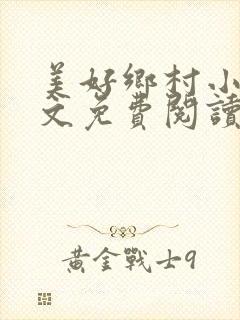 美好鄉村小
文免費閱讀
黃金戰士9